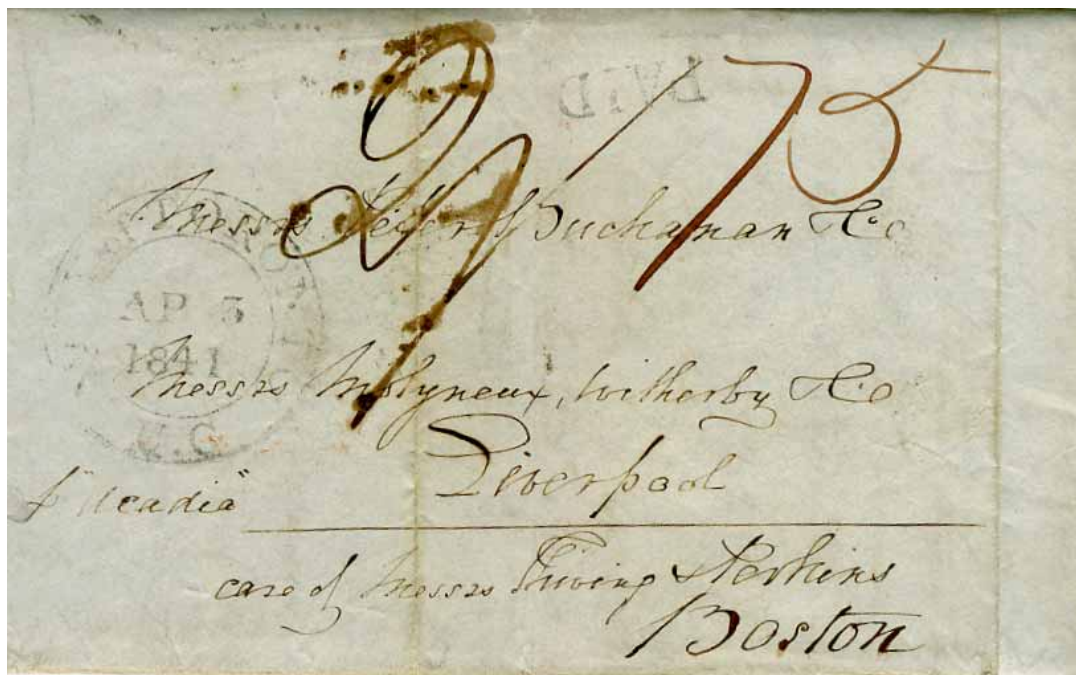 PAID
2/9 75
Messrs Peter Buchanan & Co
AP 3
1841
U.C.
Messrs Molyneux, Witherby & Co
Liverpool
p "Acadia"
care of Messrs Thwing & Perkins
Boston